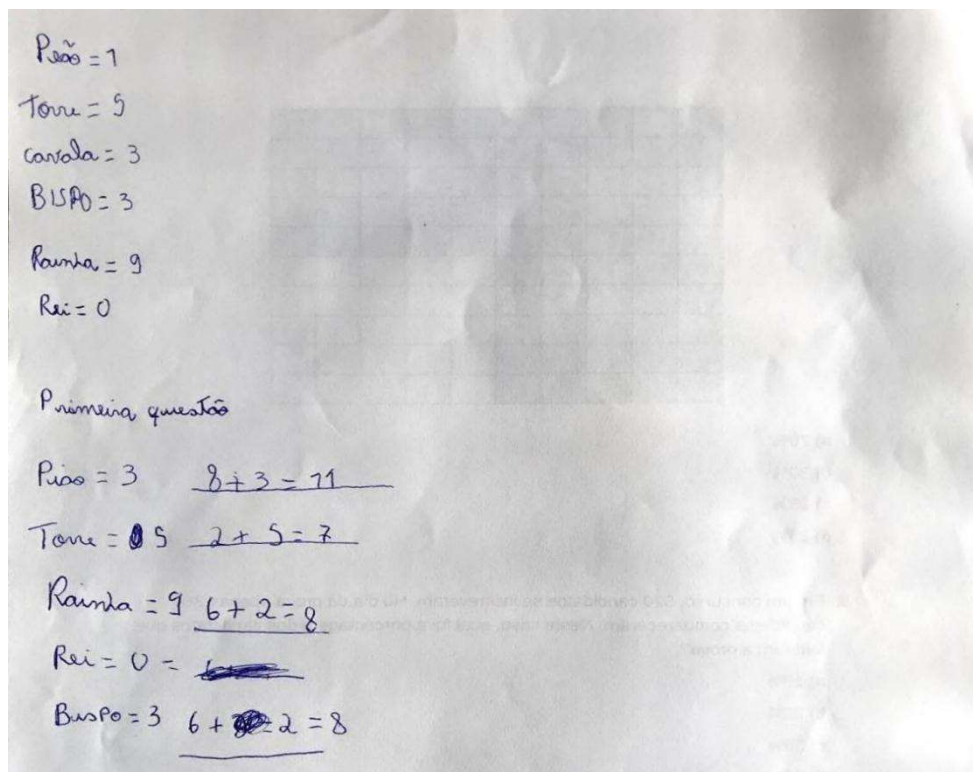 Peão = 1
Torre = 5
Cavala = 3
BISPO = 3
Rainha = 9
Rei = 0
Primeira questão
Pião = 3 8 + 3 = 11
Torre = 5 2 + 5 = 7
Rainha = 9 6 + 2 = 8
Rei = 0 =
Buspo = 3 6 + 2 = 8